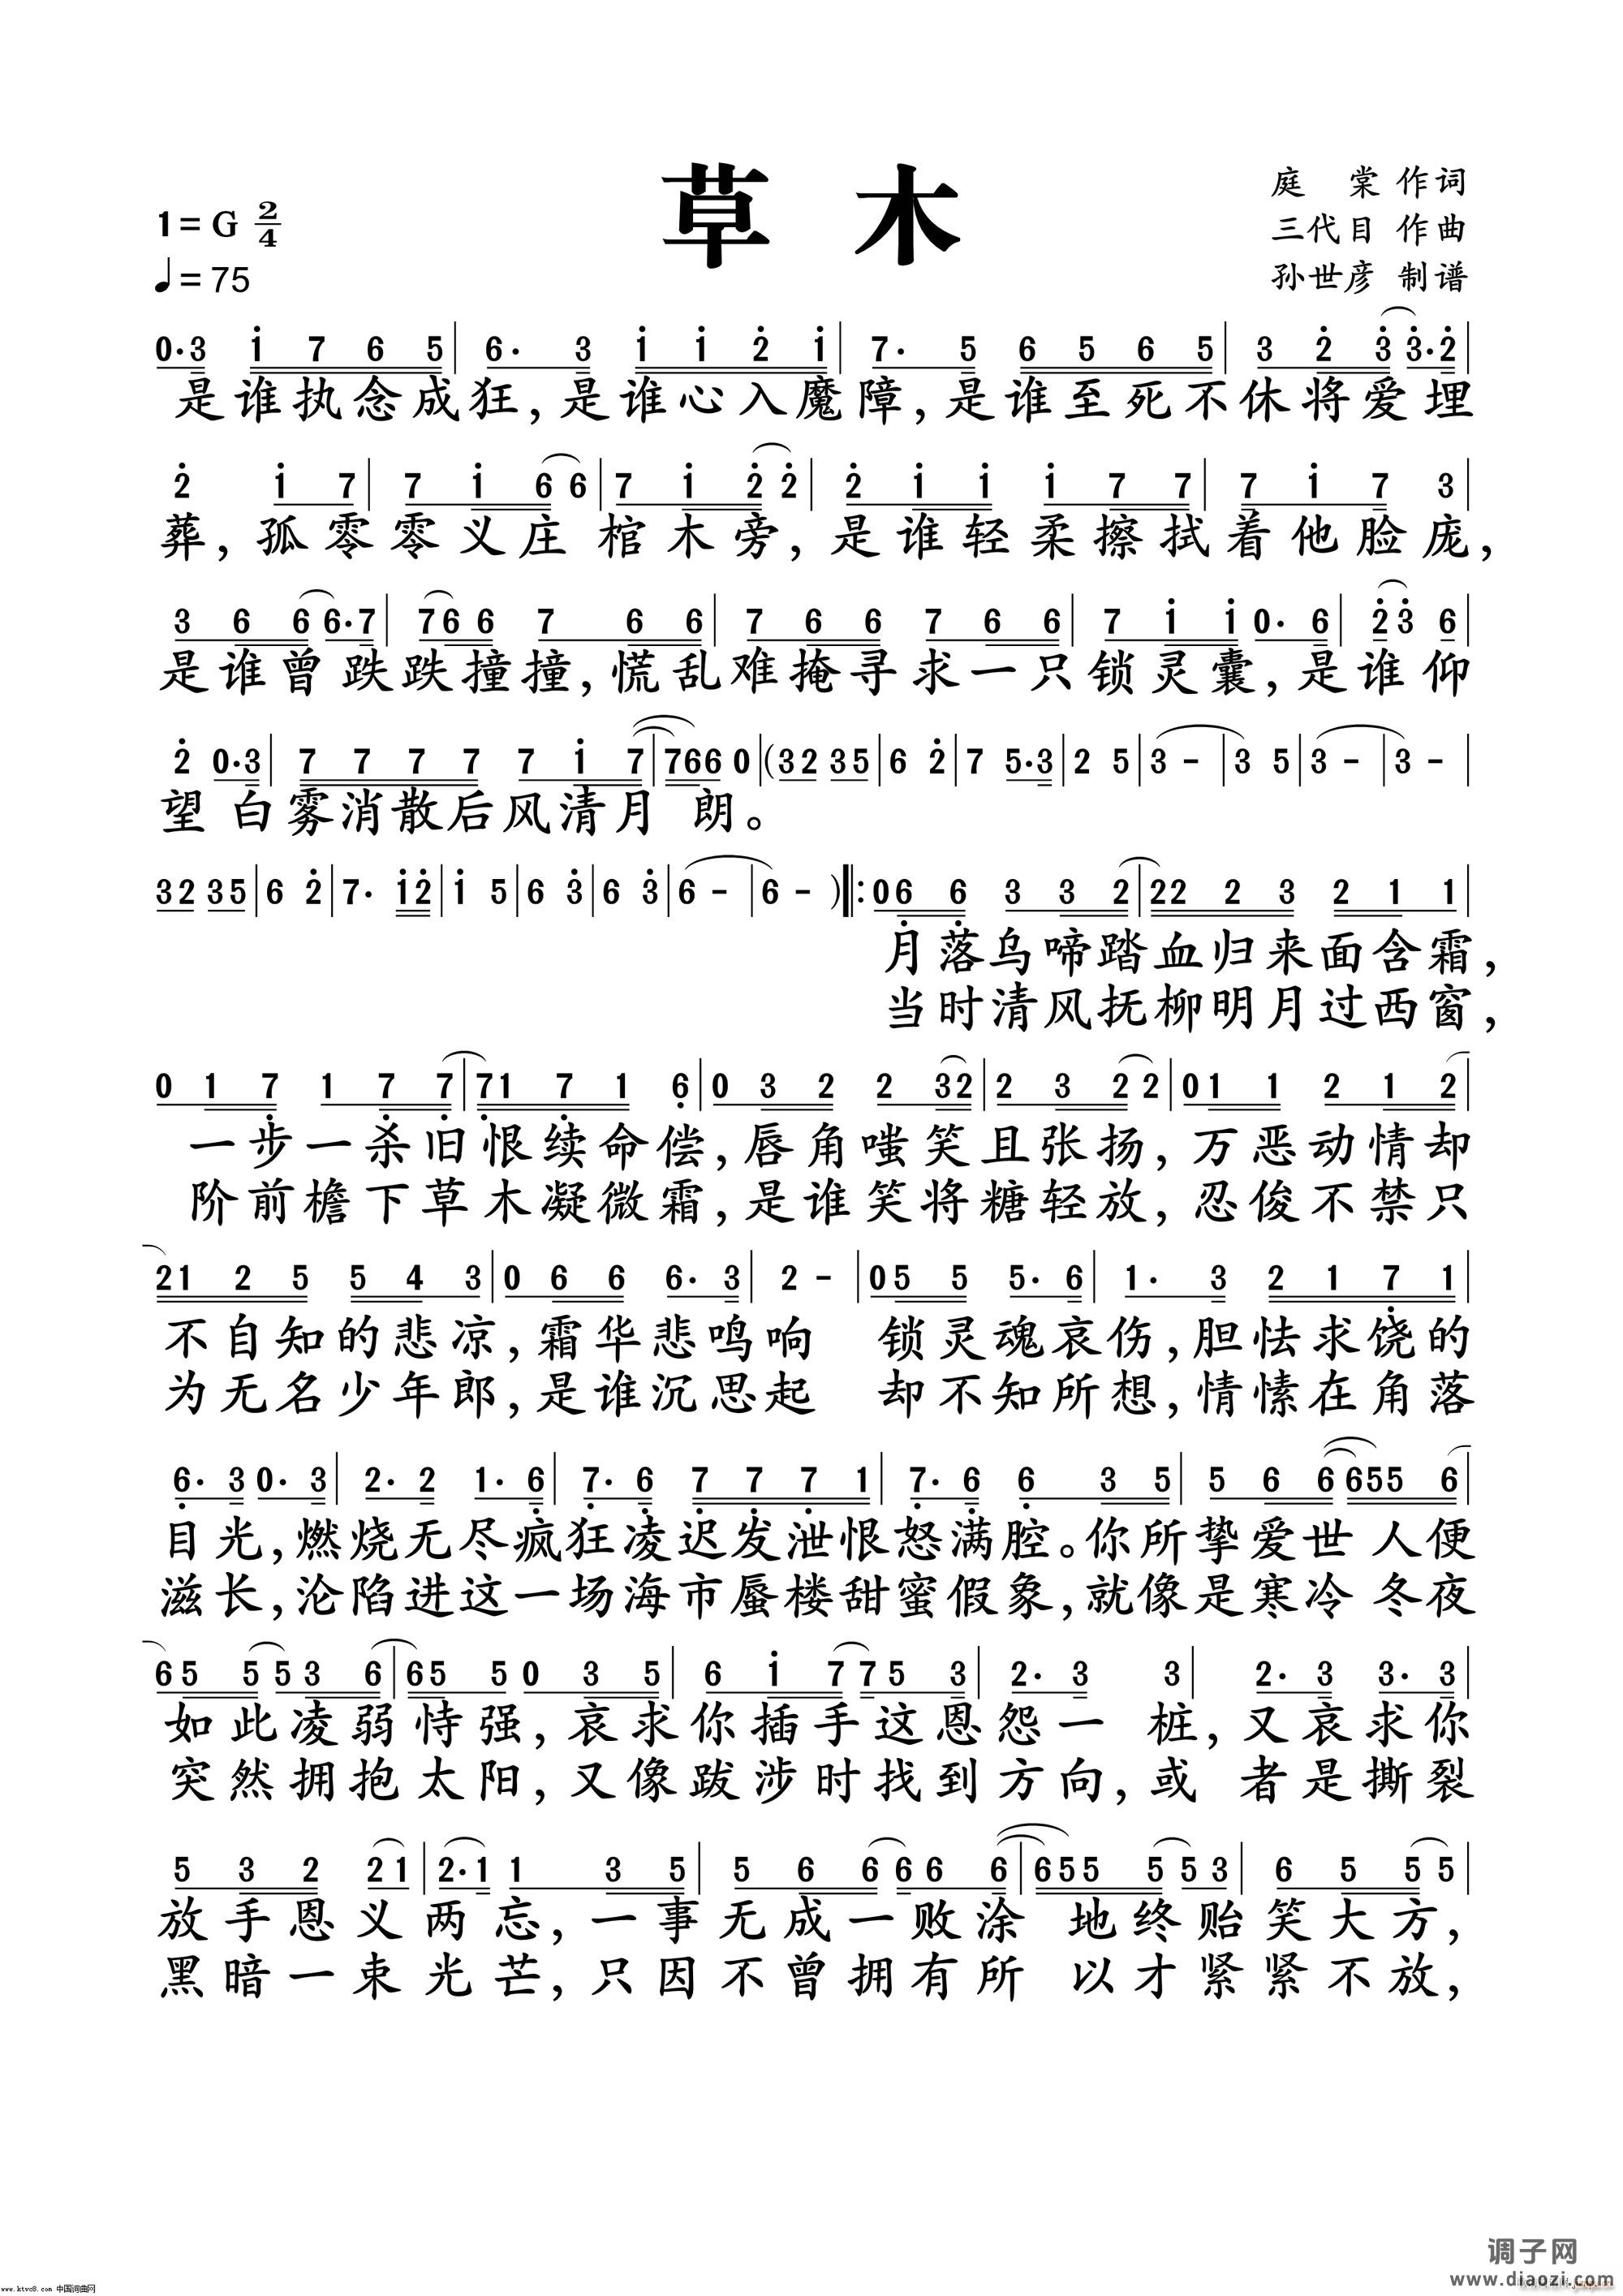 草 木
庭 棠 作词
三代目 作曲
孙世彦 制谱
1= G 2/4
♩= 75
0·3 i 7 6 5 | 6· 3 i i 2̇ i | 7· 5 6 5 6 5 | 3 2̇ 3̇ 3̇·2̇ |
是谁执念成狂,是谁心入魔障,是谁至死不休将爱埋
2̇ i 7 | 7 i 6 6 | 7 i 2̇ 2̇ | 2̇ i i i 7 7 | 7 i 7 3 |
葬,孤零零义庄 棺木旁,是谁轻柔擦拭着他脸庞,
3 6 6 6·7 | 7 6 6 7 6 6 | 7 6 6 7 6 6 | 7 i i 0· 6 | 2̇ 3̇ 6 |
是谁曾跌跌撞撞,慌乱难掩寻求一只锁灵囊,是谁仰
2̇ 0·3 | 7 7 7 7 7 i 7 | 7 6 6 0 | (3 2 3 5 | 6 2̇ | 7 5·3 | 2 5 | 3 - | 3 5 | 3 - | 3 - |
望 白雾消散后风清月 朗。
3 2 3 5 | 6 2̇ | 7· i 2̇ | i 5 | 6 3̇ | 6 3̇ | 6 - | 6 - ) ‖: 0 6̣ 6̣ 3 3 2 | 2 2 2 3 2 1 1 |
月落乌啼踏血归来面含霜,
当时清风抚柳明月过西窗,
0 1 7̣ 1 7̣ 7̣ | 7̣ 1 7̣ 1 6̣ | 0 3 2 2 3 2 | 2 3 2 2 | 0 1 1 2 1 2 |
一步一杀旧恨续命偿,唇角嗤笑且张扬,万恶动情却
阶前檐下草木凝微霜,是谁笑将糖轻放,忍俊不禁只
2 1 2 5 5 4 3 | 0 6 6 6· 3 | 2 - | 0 5 5 5· 6 | 1· 3 2 1 7̣ 1 |
不自知的悲凉,霜华悲鸣响 锁灵魂哀伤,胆怯求饶的
为无名少年郎,是谁沉思起 却不知所想,情愫在角落
6̣· 3 0· 3 | 2· 2 1· 6̣ | 7̣· 6̣ 7̣ 7̣ 7̣ 1 | 7̣· 6̣ 6̣ 3 5 | 5 6 6 6 5 5 6 |
目光,燃烧无尽疯狂凌迟发泄恨怒满腔。你所挚爱世 人便
滋长,沦陷进这一场海市蜃楼甜蜜假象,就像是寒冷 冬夜
6 5 5 5 3 6 | 6 5 5 0 3 5 | 6 i 7 7 5 3 | 2· 3 3 | 2· 3 3· 3 |
如此凌弱恃强,哀求你插手这恩怨一 桩,又哀求你
突然拥抱太阳,又像跋涉时找到方向,或 者是撕裂
5 3 2 2 1 | 2·1 1 3 5 | 5 6 6 6 6 6 | 6 5 5 5 5 3 | 6 5 5 5 |
放手恩义两忘,一事无成一败涂 地终贻笑大方,
黑暗一束光芒,只因不曾拥有所 以才紧紧不放,
调子网
www.diaozi.com
www.ktvc8.com 中国词曲网